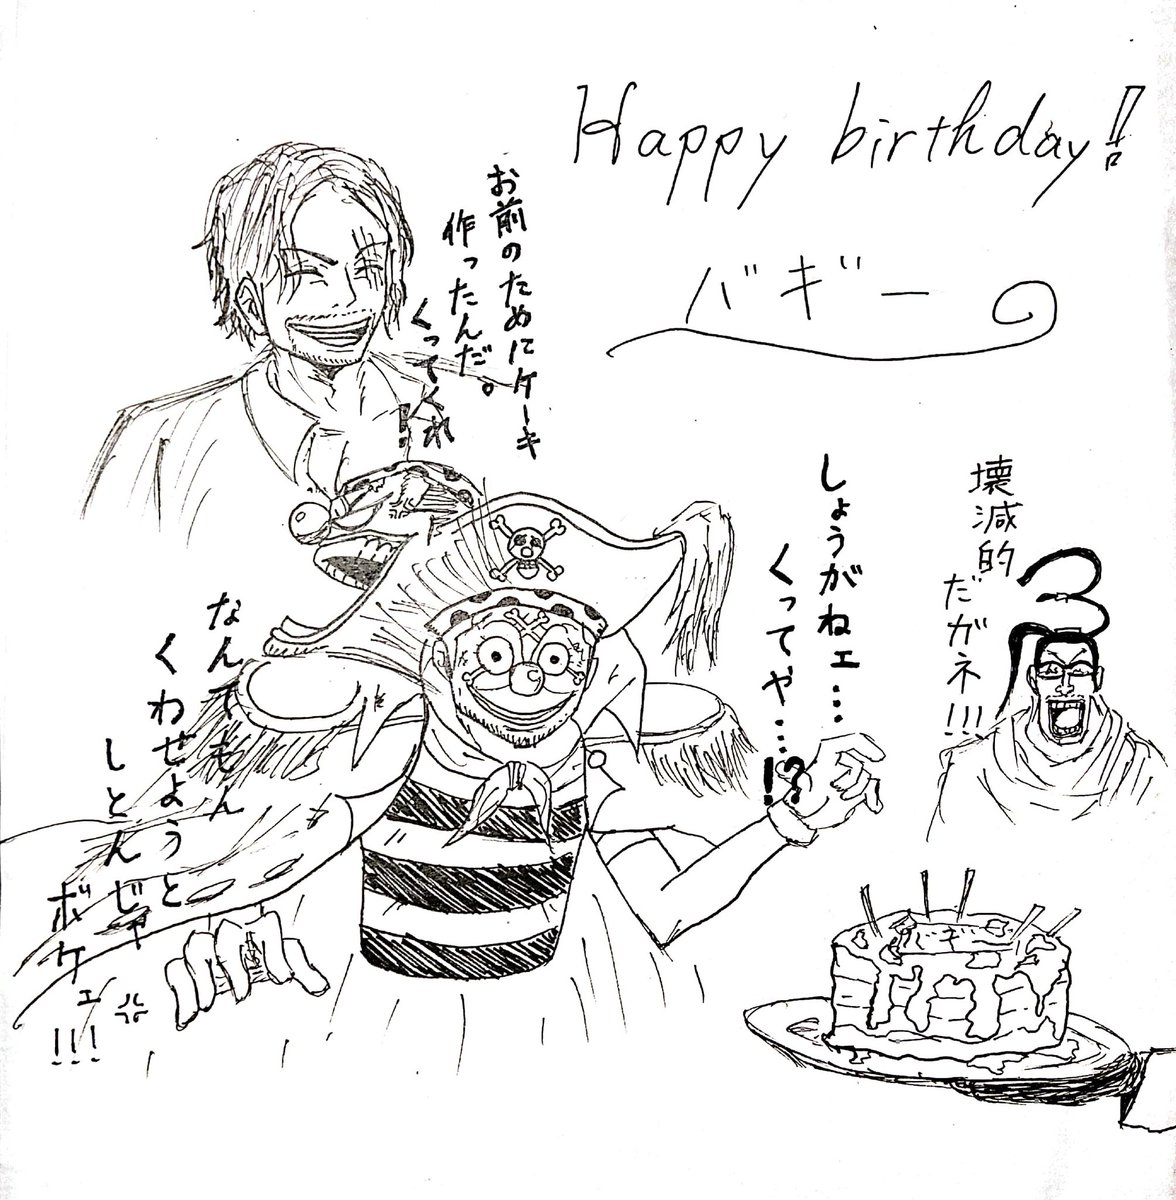 Happy birthday!
バギー
お前のためにケーキ
作ったんだ。
くってくれ
!
壊滅的
だがネ!!!
しょうがねェ…
くってや…!?
なんてもん
くわせようと
しとんじゃ
ボケェ!!!
バギー